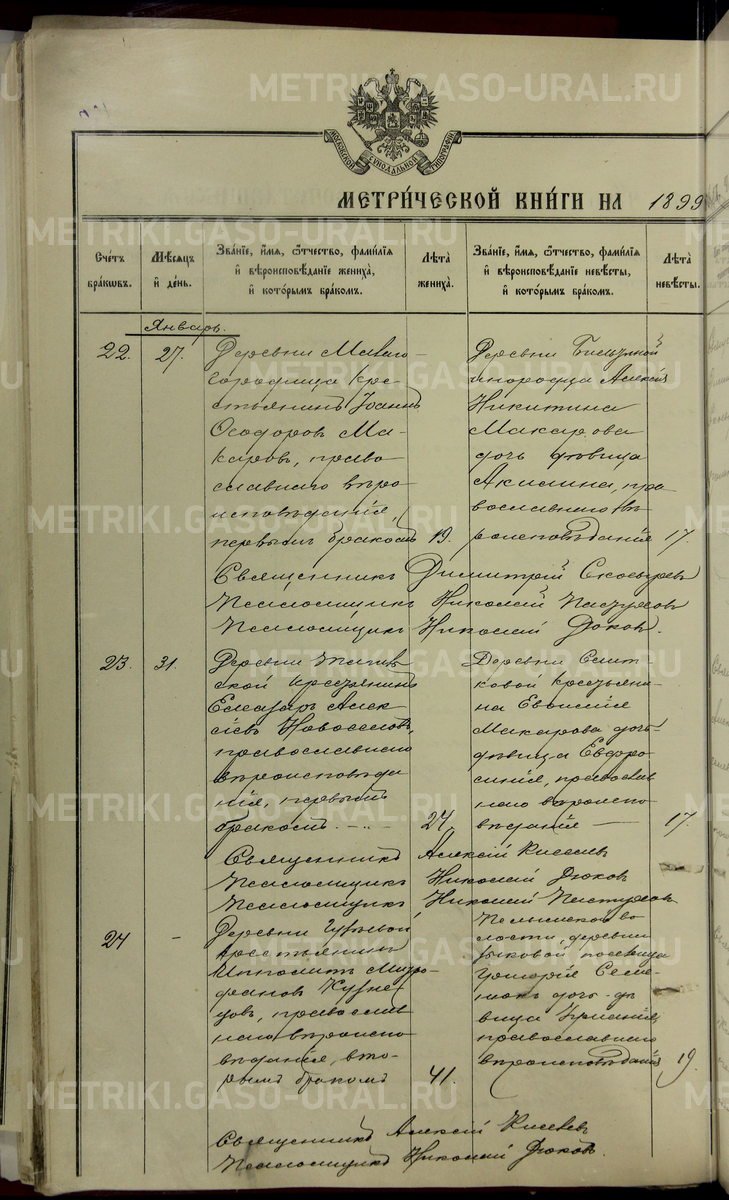 METRIKI.GASO-URAL.RU
МОСКОВСКОЙ СѴНОДАЛЬНОЙ ТИПОГРАФІИ
МЕТРИ́ЧЕСКОЙ КНИ́ГИ НА 1899
Сче́тъ бра́кѡвъ.
Мѣ́сѧцъ и҆ де́нь.
Зва́нїе, и҆́мѧ, ѻ҆́тчество, фами́лїѧ и҆ вѣроисповѣ́данїе жениха̀, и҆ кото́рымъ бра́комъ.
Лѣ́та жениха̀.
Зва́нїе, и҆́мѧ, ѻ҆́тчество, фами́лїѧ и҆ вѣроисповѣ́данїе невѣ́сты, и҆ кото́рымъ бра́комъ.
Лѣ́та невѣ́сты.
Январь.
22.
27.
Деревни
городища кре-
стьянинъ Іоаннъ
Ѳеодоровъ Ма-
каровъ, право-
славнаго вѣро
исповѣданія,
первымъ бракомъ
19.
Деревни
инородца Алексѣя
Никитина
Макарова
дочь дѣвица
Акилина, пра-
вославнаго вѣ-
роисповѣданія
17.
Священникъ Димитрій
Псаломщикъ Николай Пастуховъ
Псаломщикъ Николай Дюковъ.
23.
31.
Деревни
ской крестьянинъ
Елеазаръ Алек
сіевъ Новоселовъ,
православнаго
вѣроисповѣда
нія, первымъ
бракомъ
24.
Деревни
ковой крестьяни-
на Евѳимія
Макарова дочь
дѣвица Евфро-
синія, православ
наго вѣроиспо-
вѣданія
17.
Священникъ Алексій Киселевъ
Псаломщикъ Николай Дюковъ
Псаломщикъ Николай Пастуховъ
24
-
Деревни
крестьянинъ
Ипполитъ Митро
фановъ Кузне-
цовъ, православ
наго вѣроиспо
вѣданія, вто-
рымъ бракомъ
41.
Пелымской во-
лости, деревни
Григорія Семе-
дочь дѣ-
вица
православнаго
вѣроисповѣданія
19.
Священникъ Алексій Киселевъ
Псаломщикъ Николай Дюковъ.